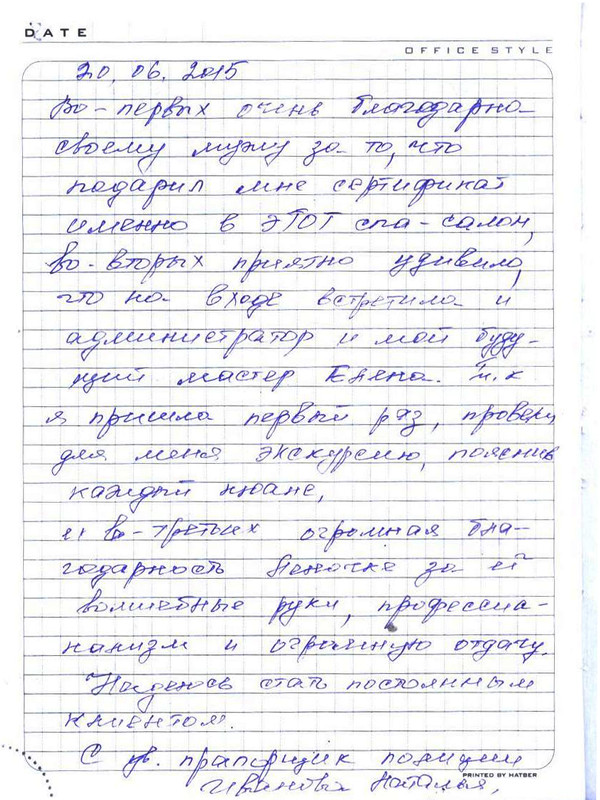 DATE
OFFICE STYLE
20.06.2015
Во-первых очень благодарна
своему мужу за то, что
подарил мне сертификат
именно в ЭТОТ спа-салон,
во-вторых приятно удивило,
что на входе встретила и
администратор и мой буду-
щий мастер Елена. Т.к
я пришла первый раз, провели
для меня экскурсию, пояснив
каждый нюанс,
и в-третьих огромная бла-
годарность Леночке за её
волшебные руки, профессиа-
нализм и огромную отдачу.
Надеюсь стать постоянным
клиентом.
С ув. прапорщик полиции
Иванова Наталья,
PRINTED BY HATBER